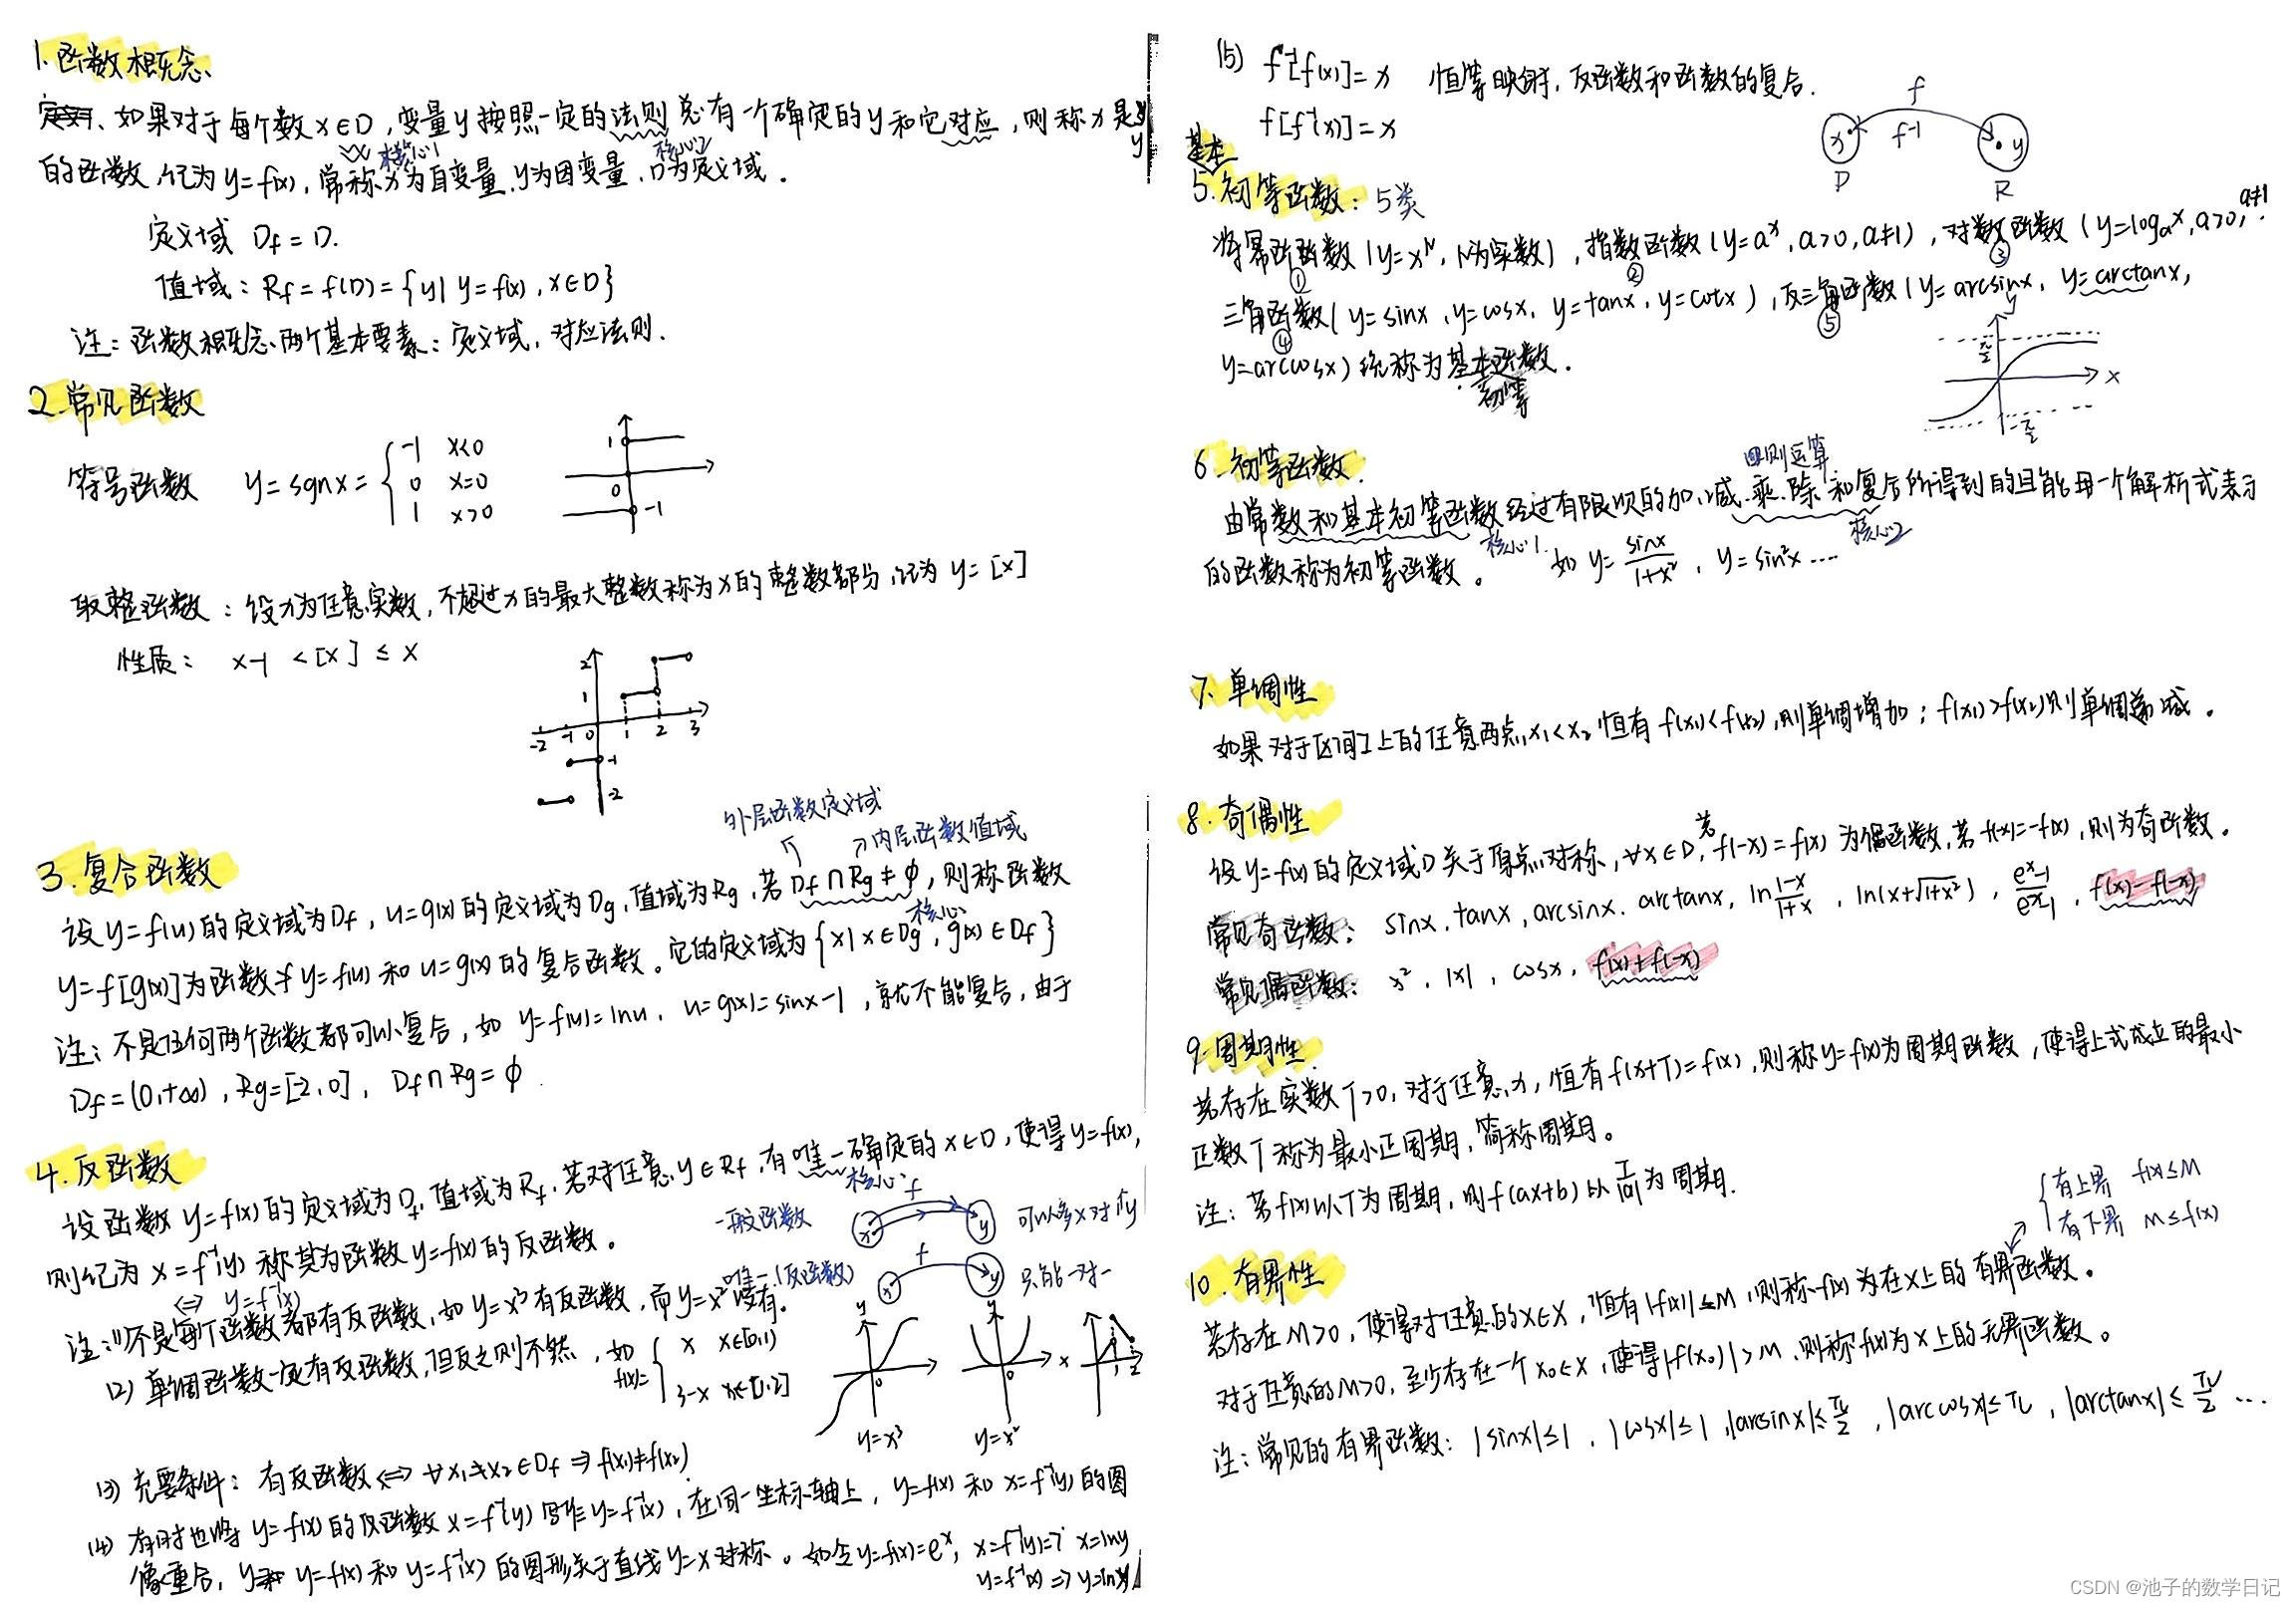 1. 函数概念
定义、如果对于每个数x∈D,变量y按照一定的法则总有一个确定的y和它对应,则称x是y
核心1 核心2
的函数,记为y=f(x),常称x为自变量,y为因变量,D为定义域.
定义域 Df=D.
值域: Rf=f(D)={y| y=f(x), x∈D}
注:函数概念两个基本要素:定义域,对应法则.
2.常见函数
符号函数 y=sgnx= { -1 x<0
0 x=0
1 x>0
1 0 -1
取整函数:设x为任意实数,不超过x的最大整数称为x的整数部分,记为y=[x]
性质: x-1 <[x] ≤ x
2 1
-2 -1 0 1 2 3
-1
-2
外层函数定义域
内层函数值域
3.复合函数
设y=f(u)的定义域为Df, u=g(x)的定义域为Dg,值域为Rg,若Df∩Rg≠φ,则称函数
核心
y=f[g(x)]为函数y=f(u)和u=g(x)的复合函数。它的定义域为{x| x∈Dg, g(x)∈Df}
注:不是任何两个函数都可以复合,如 y=f(u)=lnu, u=g(x)=sinx-1,就不能复合,由于
Df=(0,+∞), Rg=[-2,0], Df∩Rg=φ.
4.反函数
设函数y=f(x)的定义域为Df,值域为Rf,若对任意y∈Rf,有唯一确定的x∈D,使得y=f(x),
核心
一般函数 x f y 可以多x对1y
则记为x=f⁻¹(y)称其为函数y=f(x)的反函数。
⇔ y=f⁻¹(x)
唯一(反函数) x f y 只能一对一
注:(1)不是每个函数都有反函数,如y=x³有反函数,而y=x²没有.
(2) 单调函数一定有反函数,但反之则不然,如 f(x)= { x x∈[0,1)
3-x x∈[1,2]
y 0 y=x³
y 0 x y=x²
1 2
(3) 充要条件:有反函数⇔ ∀x₁≠x₂∈Df ⇒ f(x₁)≠f(x₂)
(4) 有时也将y=f(x)的反函数x=f⁻¹(y)写作y=f⁻¹(x),在同一坐标轴上,y=f(x)和x=f⁻¹(y)的图
像重合,y=f(x)和y=f⁻¹(x)的图形关于直线y=x对称。如令y=f(x)=e^x, x=f⁻¹(y)=? x=lny
y=f⁻¹(x) ⇒ y=lnx
(5) f⁻¹[f(x)]=x 恒等映射,反函数和函数的复合.
f[f⁻¹(x)]=x
x D f f⁻¹ y R
基本
5.初等函数: 5类
将幂函数(y=x^μ, μ为实数),指数函数(y=a^x, a>0, a≠1),对数函数(y=logₐx, a>0, a≠1.
① ② ③
三角函数(y=sinx, y=cosx, y=tanx, y=cotx),反三角函数(y=arcsinx, y=arctanx,
④ ⑤
y=arccosx)统称为基本函数.
初等
y π/2 x -π/2
6.初等函数.
四则运算
由常数和基本初等函数经过有限次的加、减、乘、除和复合所得到的且能用一个解析式表示
核心1. 核心2
的函数称为初等函数。 如 y=sinx/(1+x²), y=sin²x ....
7.单调性
如果对于区间I上的任意两点,x₁<x₂恒有f(x₁)<f(x₂),则单调增加;f(x₁)>f(x₂)则单调递减.
8.奇偶性
设y=f(x)的定义域D关于原点对称,∀x∈D,若f(-x)=f(x)为偶函数,若f(-x)=-f(x),则为奇函数.
常见奇函数: sinx, tanx, arcsinx, arctanx, ln(1-x)/(1+x), ln(x+√(1+x²)), (e^x-1)/(e^x+1), f(x)-f(-x)
常见偶函数: x², |x|, cosx, f(x)+f(-x)
9.周期性
若存在实数T>0,对于任意x,恒有f(x+T)=f(x),则称y=f(x)为周期函数,使得上式成立的最小
正数T称为最小正周期,简称周期。
注:若f(x)以T为周期,则f(ax+b)以T/|a|为周期.
{ 有上界 f(x)≤M
有下界 M≤f(x)
10.有界性
若存在M>0,使得对任意的x∈X,恒有|f(x)|≤M,则称f(x)为在X上的有界函数.
对于任意的M>0,至少存在一个x₀∈X,使得|f(x₀)|>M,则称f(x)为X上的无界函数.
注:常见的有界函数: |sinx|≤1, |cosx|≤1, |arcsinx|≤π/2, |arccosx|≤π, |arctanx|≤π/2 ...
CSDN @池子的数学日记